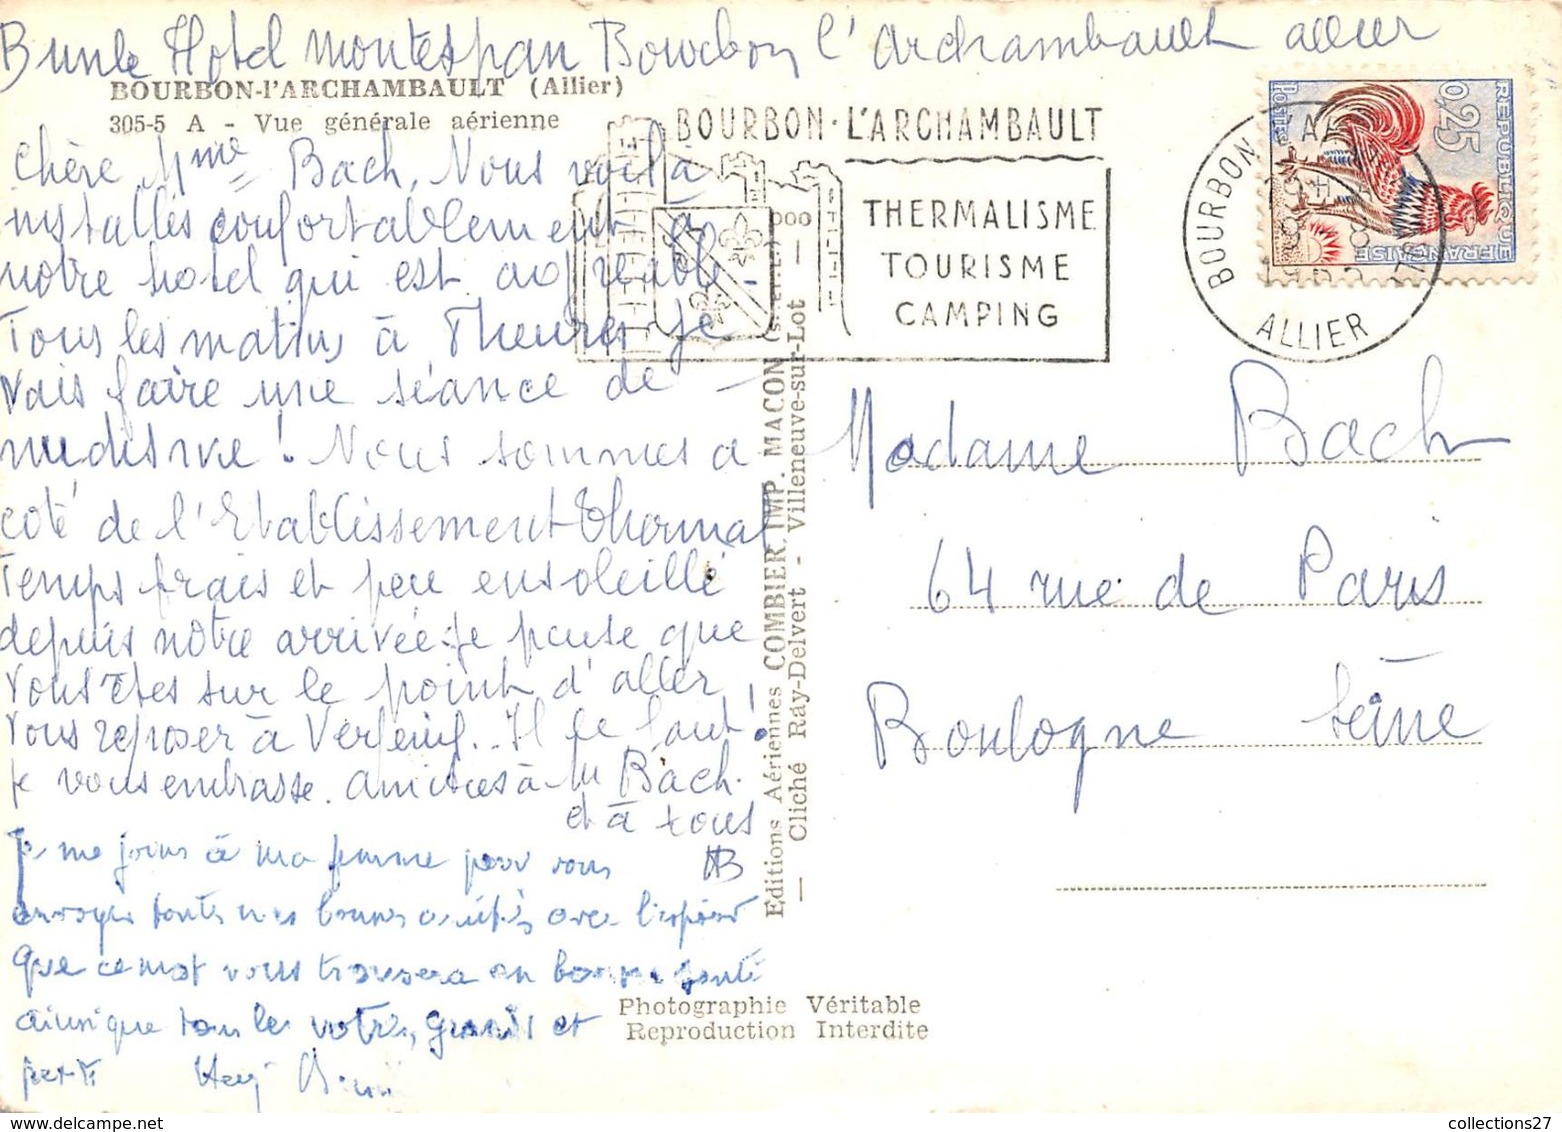 Hotel Montespan Bourbon l'Archambault Allier
BOURBON-l'ARCHAMBAULT (Allier)
305-5 A - Vue générale aérienne
Chère Mme Bach, Nous voilà
installés confortablement à
notre hotel qui est agréable -
Tous les matins à 7 heures je
vais faire une séance de -
nudisme ! Nous sommes a
coté de l'Etablissement thermal
Temps frais et peu ensoleillé
depuis notre arrivée. Je pense que
vous êtes sur le point d'aller
vous reposer à Verfeuil.. Il le faut !
je vous embrasse. amitiés à Mr Bach
et à tous
HB
Je me joins à ma femme pour vous
envoyer toutes mes bonnes amitiés avec l'espoir
que ce mot vous trouvera en bonne santé
ainsi que tous les votres, grands et
petits
BOURBON-L'ARCHAMBAULT
THERMALISME
TOURISME
CAMPING
BOURBON L'AR
ALLIER
REPUBLIQUE FRANÇAISE
0,25
Postes
Madame Bach
64 rue de Paris
Boulogne Seine
Editions Aériennes COMBIER IMP. MACON
— Cliché Ray-Delvert - Villeneuve-sur-Lot —
Photographie Véritable
Reproduction Interdite
collections27